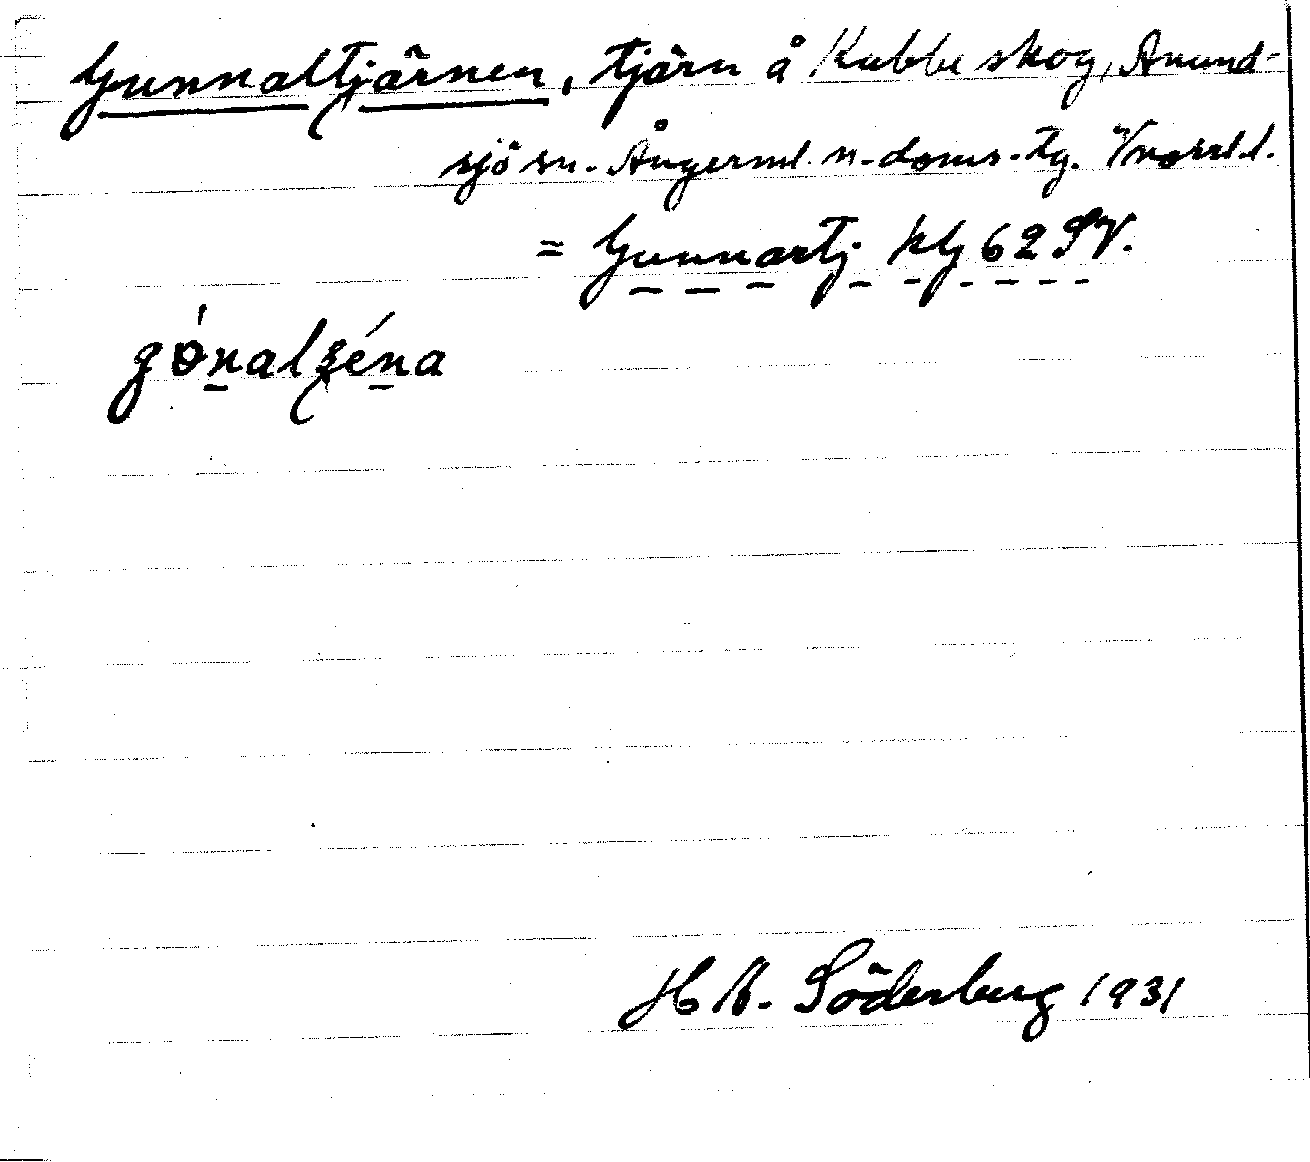 Gunnaltjärnen, tjärn å Kubbe skog, Anund-
sjö sn. Ångerml. n. doms. tg. Vnorrl.l.
= Gunnartj. klg 62 SV.
gónalʒéna
H A. Söderberg 1931